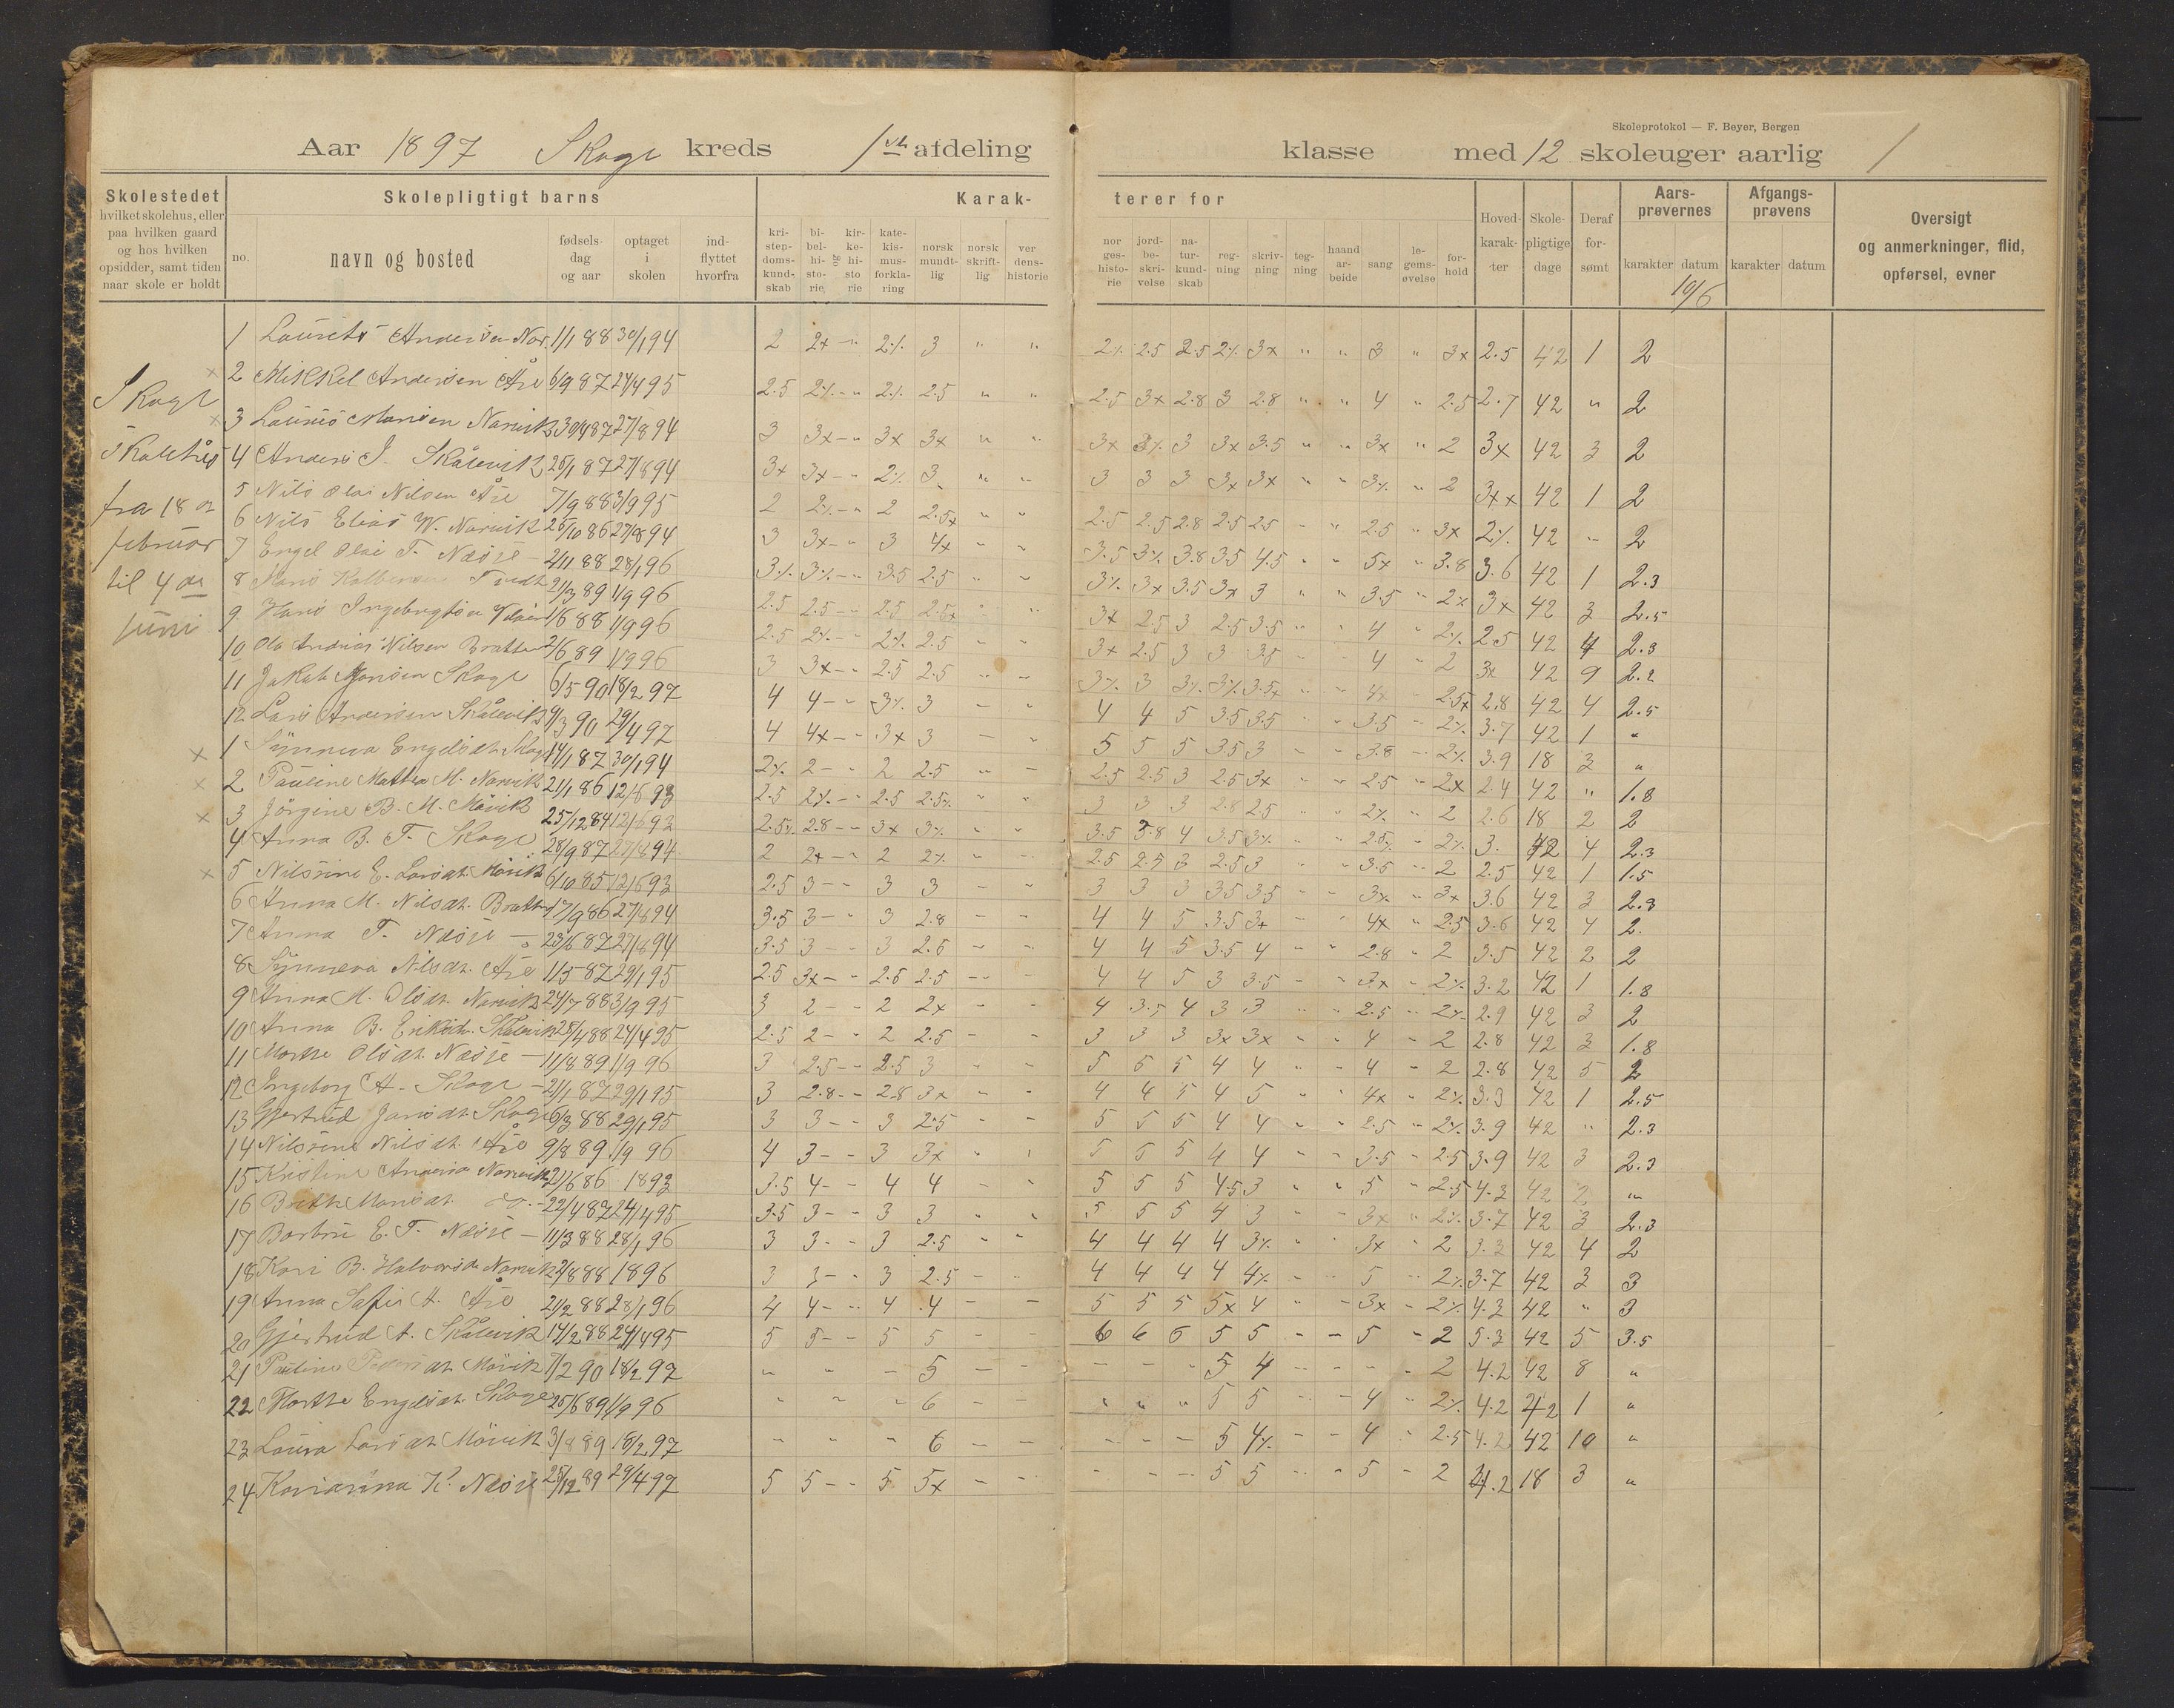 Skoleprotokol — F. Beyer, Bergen
Aar 1897 Skoge kreds 1ste afdeling klasse med 12 skoleuger aarlig 1
Skolestedet
hvilket skolehus, eller
paa hvilken gaard
og hos hvilken
opsidder, samt tiden
naar skole er holdt
Skolepligtigt barns
no.
navn og bosted
fødsels-
dag
og aar
optaget
i
skolen
ind-
flyttet
hvorfra
Karak-
terer for
kri-
sten-
doms-
kund-
skab
bi-
bel-
hi-
sto-
rie
og
kir-
ke-
hi-
sto
rie
kate-
kis-
mus-
forkla-
ring
norsk
mundt-
lig
norsk
skrift-
lig
ver
dens-
historie
nor
ges-
histo-
rie
jord-
be-
skri-
velse
na-
tur-
kund-
skab
reg-
ning
skriv-
ning
teg-
ning
haand
ar-
beide
sang
le-
gems-
øvelse
for-
hold
Hoved-
karak-
ter
Skole-
pligtige
dage
Deraf
for-
sømt
Aars-
prøvernes
karakter datum
10/6
Afgangs-
prøvens
karakter datum
Oversigt
og anmerkninger, flid,
opførsel, evner
Skoge
fra 18 de
februar
til 4 de
juni
1 Andersen 1/1 88 30/1 94 2 2x - " 2% 3 " " 2% 2.5 2.5 2% 3x " " 3 " 3x 2.5 42 1 2
2 Mikkel Andersen Åre 6/9 87 24/4 95 2.5 2% - " 2% 2.5 " " 2.5 3x 2.8 3 2.8 " " 4 " 2.5 2.7 42 " 2
3 Monsen Narvik 30/4 87 27/8 94 3 3x - " 3x 3x " " 3x 3% 3 3x 3.5 " " 3x " 2 3x 42 3 2
4 Anders J. Skålevik 25/1 87 27/8 94 3x 3x - " 2% 3 " " 3 3 3 3x 3x " " 3% " 2 3xx 42 1 2
5 Nils Olai Nilsen Åre 7/9 88 3/9 95 2 2% - " 2 2.5x " " 2.5 2.5 2.8 2.5 2.5 " " 2.5 " 3x 2% 42 " 2
6 Nils Elias W. Narvik 25/10 86 27/8 94 3 3x - " 3 4x " " 3.5 3% 3.8 3.5 4.5 " " 5x " 3.8 3.6 42 1 2.3
7 Engel Olai T. Næsse 2/11 88 28/1 96 3% 3% - " 3.5 2.5 " " 3% 3x 3.5 3x 3 " " 3.5 " 2% 3x 42 3 2.5
8 21/3 89 1/9 96 2.5 2.5 - " 2.5 2.5x " " 3x 2.5 3 2.5 3.5 " " 4 " 2% 2.5 42 4 2.3
9 Hans 1/6 88 1/9 96 2.5 2% - " 2% 2.5 " " 3x 2.5 3 3 3.5 " " 4 " 2 3x 42 9 2.2
10 Ole Andreas Nilsen 2/6 89 1/9 96 3 3x - " 2.5 2.5 " " 3% 3 3% 3% 3.5x " " 4x " 2.5x 2.8 42 4 2.5
11 Jakob Monsen Skoge 6/5 90 18/2 97 4 4 - " 3% 3 " " 4 4 5 3.5 3.5 " " 3.5 " 2% 3.7 42 1 "
12 Lars Andersen Skålevik 9/3 90 29/4 97 4 4x - " 3x 3 - " 5 5 5 3.5 3 " " 3.8 " 2% 3.9 18 3 "
1 Synneva Engelsdt. Skoge 14/1 87 30/1 94 2% 2 - " 2 2.5 " - 2.5 2.5 3 2.5 3x " " 2.5 " 2x 2.4 42 " 1.8
2 Pauline Mathea M. Narvik 21/1 86 12/6 93 2.5 2% - " 2.5 2.5% " " 3 3 3 2.8 2.5 " " 2% " 2 2.6 18 2 2
3 Jörgine B. M. Mövik 25/12 84 12/6 93 2.5% 2.8 - " 3x 3% " " 3.5 3.8 4 3.5 3% " " 2.5% " 2% 3. 42 4 2.3
4 Anna B. T. Skoge 28/9 87 27/8 94 2 2x - " 2 2% " " 2.5 2.5 3 2.5 3 " " 3.5 " 2 2.5 42 1 1.5
5 Nilsine E. Larsdt. Mövik 6/10 85 12/6 93 2.5 3 - " 3 3 " " 3 3 3 3.5 3.5 " " 3x " 3x 3.6 42 3 2.3
6 Anna M. Nilsdt. 17/9 86 27/8 94 3.5 3 - " 3 2.8 " " 4 4 5 3.5 3x " " 4x " 2.5 3.6 42 4 2.
7 Anna T. Næsse 23/6 87 27/8 94 3.5 3 - " 3 2.5 " " 4 4 5 3.5 4 " " 2.8 " 2 3.5 42 2 2
8 Synneva Nilsdt. Åre 1/5 87 29/1 95 2.5 3x - " 2.5 2.5 - - 4 4 5 3 3.5 " " 3x " 2% 3.2 42 1 1.8
9 Anna M. Olsdt. Narvik 24/7 88 3/9 95 3 2 - " 2 2x - " 4 3.5 4 3 3 " " 2.5 " 2% 2.9 42 3 2
10 Anna B. Eriksdt. Skålevik 25/4 88 24/4 95 2.5 2 - " 2 2.5 - " 3 3 3 3x 3x " " 4 " 2 2.8 42 3 1.8
11 Marthe Olsdt. Næsse 11/8 89 1/9 96 3 2.5 - " 2.5 3 " " 5 5 5 4 4 " " 4 " 2 2.8 42 5 2
12 Ingeborg A. Skoge 21/1 87 29/1 95 3 2.8 - " 2.8 3x " " 4 4 5 4 5 " " 4x " 2% 3.3 42 1 2.5
13 Gjertrud Jansdt. Skoge 6/3 88 29/1 95 3 3 - " 3 2.5 " " 5 5 5 4 4 " " 2.5 " 2% 3.9 42 " 2.3
14 Nilsine Nilsdt. Åre 9/8 89 1/9 96 4 3 - " 3 3x " " 5 5 5 4 4 " " 3.5 " 2.5 3.9 42 3 2.3
15 Kristine Andersd. Narvik 21/6 86 1893 3.5 4 - " 4 4 " " 5 5 5 4.5 3 " " 5 " 2.5 4.3 42 2 "
16 Monsdt. do. 22/4 87 24/4 95 3.5 3 - " 3 3 " " 5 5 5 4 3 " " 3x " 2% 3.7 42 3 2.3
17 Barbru E. T. Næsse 11/3 88 28/1 96 3 3 - " 3 2.5 " " 4 4 4 4 3% " " 3x " 2 3.3 42 4 2
18 Kari B. Halvorsdt. Narvik 2/8 88 1896 3 3 - " 3 2.5 - " 4 4 4 4 4% " " 5 " 2% 3.7 42 3 3
19 Anna Sofie A. Åre 21/2 88 28/1 96 4 4 - " 4 4 - - 5 5 5 5x 4 " " 3x " 2% 4.3 42 " 3
20 Gjertrud A. Skålevik 14/2 88 24/4 95 5 5 - " 5 5 - - 6 6 6 5 5 " " 5 " 2 5.3 42 5 3.5
21 Pauline Pedersdt. Mövik 7/2 90 18/2 97 " " - 5 - - - - " 5 4 " " " - 2 4.2 42 8 "
22 Marthe Engelsdt. Skoge 25/6 89 1/9 96 " " " 6 - - " " " 5 5 " - 4 " 2% 4.2 42 1 "
23 Laura Larsdt. Mövik 3/8 89 18/2 97 " " " 6 - - - - - 5 4% " - 4 " 2.5 4.2 42 10 "
24 Karianna K. Næsse 25/12 89 29/4 97 5 5 - " 5 5x - " - - - 5 5 " " 5 " 2 4.2 18 3 "